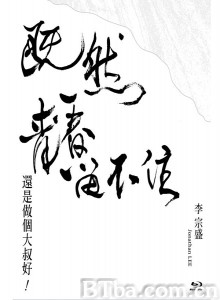 既然
青春
留不住
還是做個大叔好！
李宗盛
Jonathan LEE
BTba.com.cn